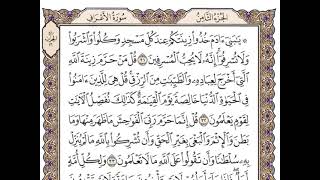 الجُزْءُ الثَّامِنُ سُورَةُ الأَعْرَافِ
۞ يَٰبَنِيٓ ءَادَمَ خُذُوا۟ زِينَتَكُمْ عِندَ كُلِّ مَسْجِدٍ وَكُلُوا۟ وَٱشْرَبُوا۟
وَلَا تُسْرِفُوٓا۟ إِنَّهُۥ لَا يُحِبُّ ٱلْمُسْرِفِينَ ٣١ قُلْ مَنْ حَرَّمَ زِينَةَ ٱللَّهِ
ٱلَّتِيٓ أَخْرَجَ لِعِبَادِهِۦ وَٱلطَّيِّبَٰتِ مِنَ ٱلرِّزْقِ قُلْ هِيَ لِلَّذِينَ ءَامَنُوا۟
فِي ٱلْحَيَوٰةِ ٱلدُّنْيَا خَالِصَةً يَوْمَ ٱلْقِيَٰمَةِ كَذَٰلِكَ نُفَصِّلُ ٱلْأٓيَٰتِ
لِقَوْمٍ يَعْلَمُونَ ٣٢ قُلْ إِنَّمَا حَرَّمَ رَبِّيَ ٱلْفَوَٰحِشَ مَا ظَهَرَ مِنْهَا وَمَا
بَطَنَ وَٱلْإِثْمَ وَٱلْبَغْيَ بِغَيْرِ ٱلْحَقِّ وَأَن تُشْرِكُوا۟ بِٱللَّهِ مَا لَمْ يُنَزِّلْ
بِهِۦ سُلْطَٰنًا وَأَن تَقُولُوا۟ عَلَى ٱللَّهِ مَا لَا تَعْلَمُونَ ٣٣ وَلِكُلِّ أُمَّةٍ